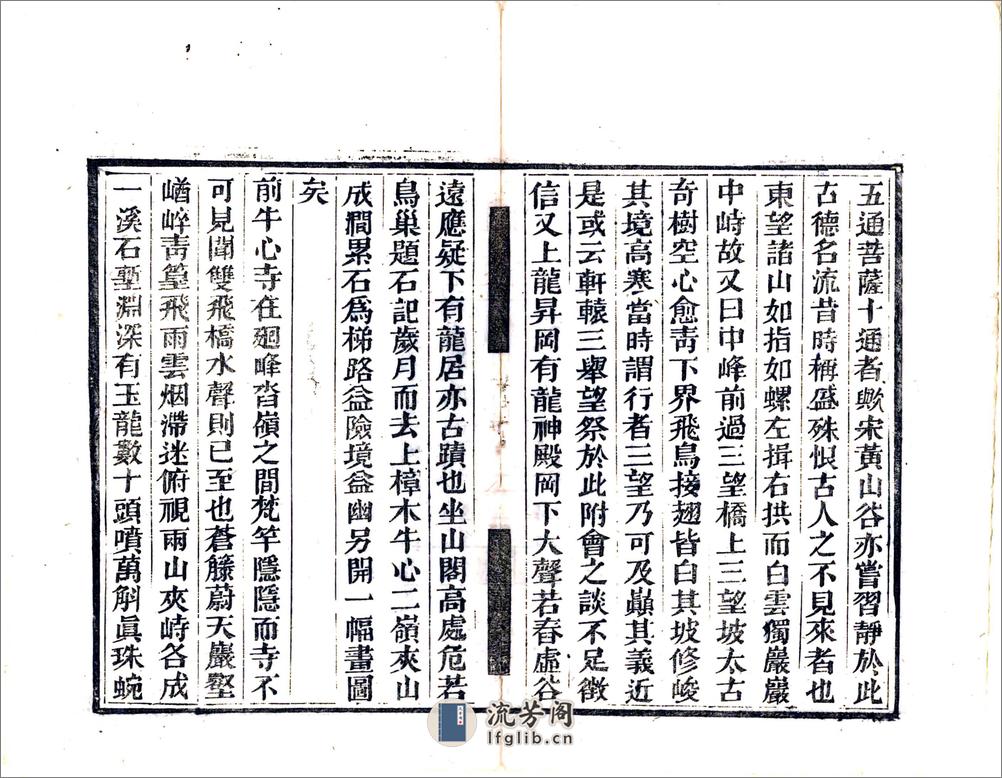 五通菩薩十通者歟宋黃山谷亦嘗習靜於此
古德名流昔時稱盛殊恨古人之不見來者也
東望諸山如指如螺左揖右拱而白雲獨巖巖
中峙故又曰中峰前過三望橋上三望坡太古
奇樹空心愈靑下界飛鳥接翅皆白其坡修峻
其境高寒當時謂行者三望乃可及巔其義近
是或云軒轅三舉望祭於此附會之談不足徵
信又上龍昇岡有龍神殿岡下大聲若春虛谷
遠應疑下有龍居亦古蹟也坐山閣高處危若
鳥巢題石記歲月而去上樟木牛心二嶺夾山
成澗累石爲梯路益險境益幽另開一幅畫圖
矣
前牛心寺在廻峰沓嶺之間梵竿隱隱而寺不
可見聞雙飛橋水聲則已至也蒼籐蔚天巖壑
崷崪靑篁飛雨雲烟滯迷俯視兩山夾峙各成
一溪石壑淵深有玉龍數十頭噴萬斛眞珠蜿
流芳阁
lfglib.cn